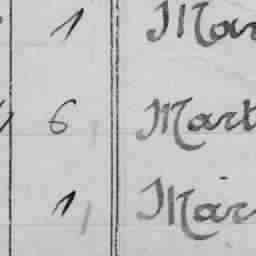 1 Mar
6 Mart
1 Mar